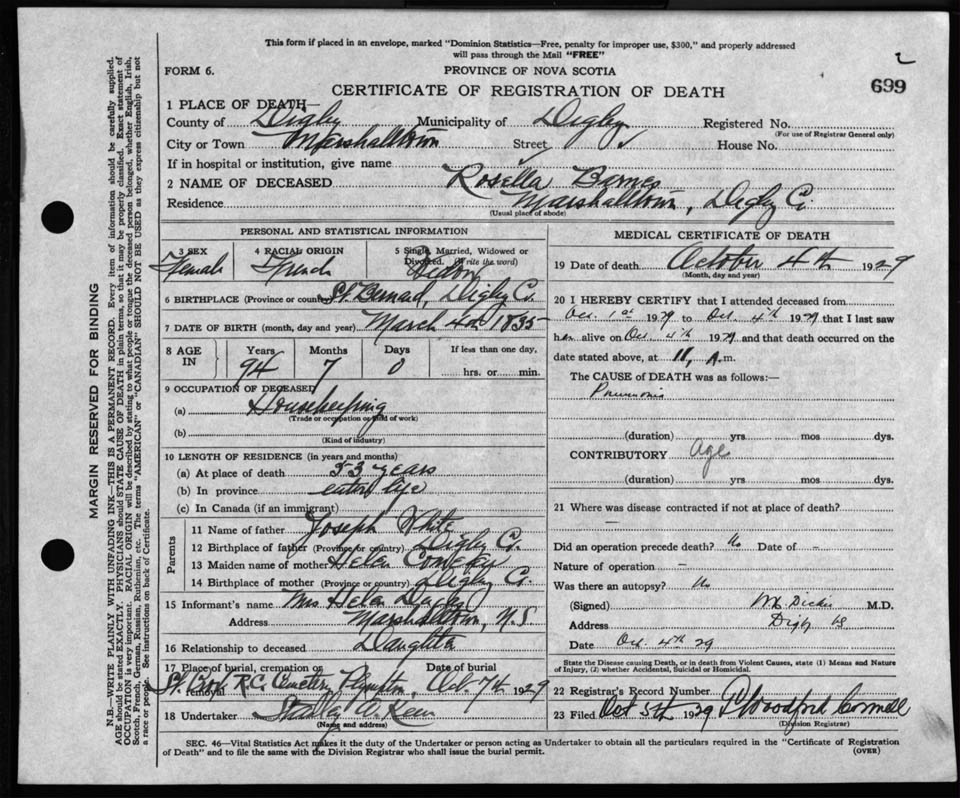 This form if placed in an envelope, marked "Dominion Statistics—Free, penalty for improper use, $300," and properly addressed
will pass through the Mail "FREE"
FORM 6. PROVINCE OF NOVA SCOTIA 699
CERTIFICATE OF REGISTRATION OF DEATH
1 PLACE OF DEATH—
County of Digby Municipality of Digby Registered No.
(For use of Registrar General only)
City or Town Marshalltown Street House No.
If in hospital or institution, give name
2 NAME OF DECEASED Rosella Barnes
Residence Marshalltown, Digby Co.
(Usual place of abode)
PERSONAL AND STATISTICAL INFORMATION
3 SEX Female
4 RACIAL ORIGIN French
5 Single, Married, Widowed or Divorced. (Write the word)
6 BIRTHPLACE (Province or country) St. Bernard, Digby Co.
7 DATE OF BIRTH (month, day and year) March 4th 1835
8 AGE IN Years 94 Months 7 Days 0 If less than one day,
hrs. or min.
9 OCCUPATION OF DECEASED
(a) Housekeeping
(Trade or occupation or kind of work)
(b)
(Kind of industry)
10 LENGTH OF RESIDENCE (in years and months)
(a) At place of death 53 years
(b) In province life
(c) In Canada (if an immigrant)
Parents
11 Name of father Joseph White
12 Birthplace of father (Province or country) Digby Co.
13 Maiden name of mother Helen
14 Birthplace of mother (Province or country) Digby Co.
15 Informant's name Mrs Helen
Address Marshalltown, N.S.
16 Relationship to deceased Daughter
17 Place of burial, cremation or removal R.C. Cemetery, Plympton, Date of burial Oct. 7th 1929
18 Undertaker
(Name and address)
MEDICAL CERTIFICATE OF DEATH
19 Date of death October 4th 1929
(Month, day and year)
20 I HEREBY CERTIFY that I attended deceased from
Oct. 1st 1929 to Oct. 4th 1929 that I last saw
her alive on Oct. 4th 1929 and that death occurred on the
date stated above, at 11, A.m.
The CAUSE of DEATH was as follows:—
Pneumonia
(duration) yrs mos dys.
CONTRIBUTORY age
(duration) yrs. mos dys.
21 Where was disease contracted if not at place of death?
—
Did an operation precede death? No Date of –
Nature of operation –
Was there an autopsy? No
(Signed) Dickie M.D.
Address Digby NS
Date Oct. 4th 29
State the Disease causing Death, or in death from Violent Causes, state (1) Means and Nature
of Injury, (2) whether Accidental, Suicidal or Homicidal.
22 Registrar's Record Number
23 Filed Oct 5th 1929 Woodford Cornell
(Division Registrar)
SEC. 46—Vital Statistics Act makes it the duty of the Undertaker or person acting as Undertaker to obtain all the particulars required in the "Certificate of Registration
of Death" and to file the same with the Division Registrar who shall issue the burial permit. (OVER)
MARGIN RESERVED FOR BINDING
N.B.—WRITE PLAINLY WITH UNFADING INK—THIS IS A PERMANENT RECORD. Every item of information should be carefully supplied.
AGE should be stated EXACTLY. PHYSICIANS should STATE CAUSE OF DEATH in plain terms, so that it may be properly classified. Exact statement of
OCCUPATION is very important. RACIAL ORIGIN will be described by stating to what people or tongue the deceased person belonged, whether English, Irish,
Scotch, French, German, Russian, Ruthenian, etc. The terms "AMERICAN" or "CANADIAN" SHOULD NOT BE USED as they express citizenship but not
a race or people. See instructions on back of Certificate.